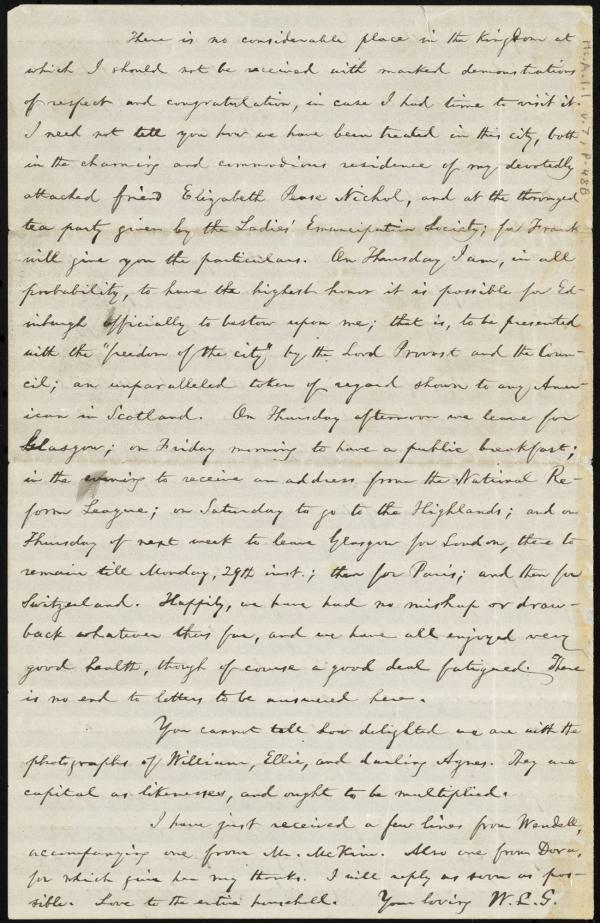 There is no considerable place in the Kingdom at
which I should not be received with marked demonstrations
of respect and congratulation, in case I had time to visit it.
I need not tell you how we have been treated in this city, both
in the charming and commodious residence of my devotedly
attached friend Elizabeth Pease Nichol, and at the thronged
tea party given by the Ladies' Emancipation Society; for Frank
will give you the particulars. On Thursday I am, in all
probability, to have the highest honor it is possible for Ed-
inburgh officially to bestow upon me; that is, to be presented
with the "freedom of the city" by the Lord Provost and the Coun-
cil; an unparalleled token of regard shown to any Amer-
ican in Scotland. On Thursday afternoon we leave for
Glasgow; on Friday morning to have a public breakfast;
in the evening to receive an address from the National Re-
form League; on Saturday to go to the Highlands; and on
Thursday of next week to leave Glasgow for London, there to
remain till Monday, 29th inst.; then for Paris; and then for
Switzerland. Happily, we have had no mishap or draw-
back whatever thus far, and we have all enjoyed very
good health, though of course a good deal fatigued. There
is no end to letters to be answered here.
You cannot tell how delighted we are with the
photographs of William, Ellie, and darling Agnes. They are
capital as likenesses, and ought to be multiplied.
I have just received a few lines from Wendell,
accompanying one from Mr. McKim. Also one from Dora,
for which give her my thanks. I will reply as soon as pos-
sible. Love to the entire household. Your loving W. L. G.
v. 7, p. 48B